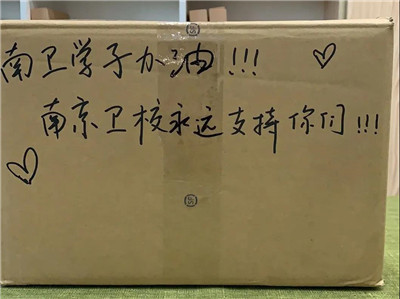 南卫学子加油!!!
南京卫校永远支持你们!!!